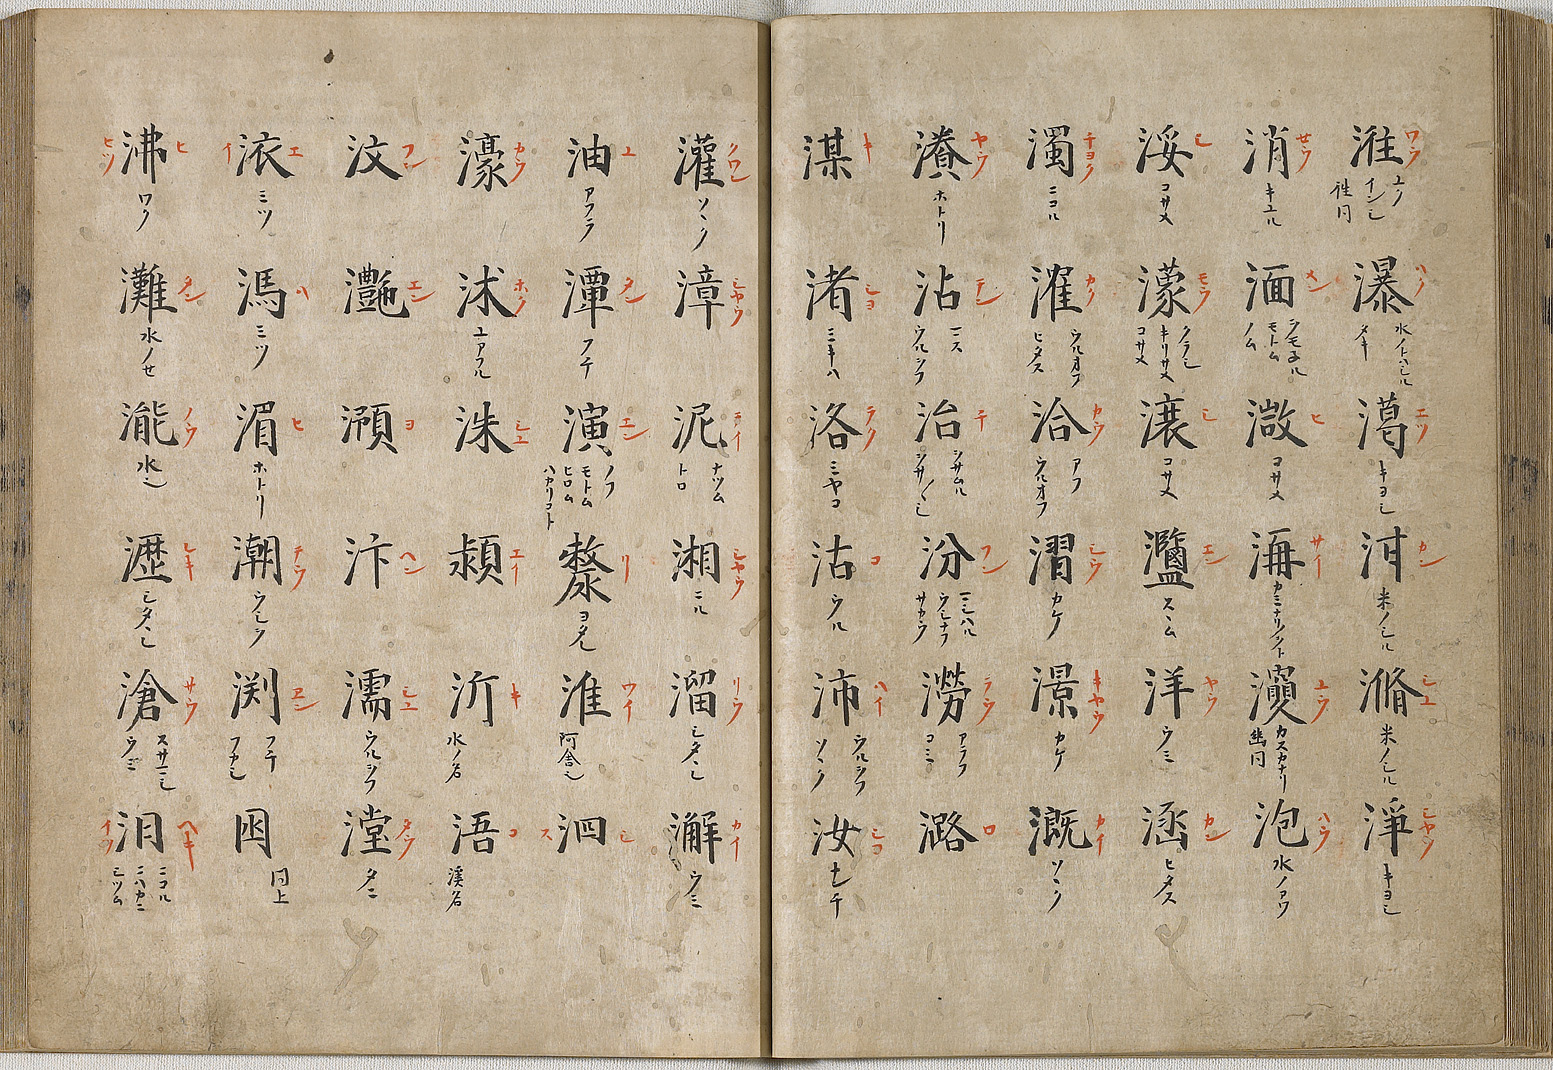 汪 ワウ ユク イシシ 徃同
瀑 ハク 水ノトハシル メキ
澫 エツ キヨシ
汻 カン 米ノシル
滫 シユ 米ノシル
淨 シヤウ キヨシ
消 せウ キユル
湎 メン シモヌル モトム ノム
溦 ヒ コサメ
洅 サイ カミナリノヲト
灦 ユウ カスカナリ 幽同
泡 ハウ 水ノアワ
浽 シ コサメ
濛 モウ クラシ キリサメ コサメ
瀼 シ コサメ
灩 エン スヽム
洋 ヤウ ウミ
涵 カン ヒタス
濁 チヨク ニコル
濯 カク ウルオフ ヒタス
洽 カウ アフ ウルオフ
溍 シウ カケ
澋 キヤウ カケ
溉 カイ ソヽク
瀁 ヤウ ホトリ
沾 テン ニス ウルシフ
治 チ シサムル シサ〱シ
汾 フン ニシハル ウシナフ サカウ
澇 ラウ アラフ コミ
潞 ロ
湈 キ
渚 シヨ ミキハ
洛 ラク ミヤコ
沽 コ ウル
沛 ハイ ウルシフ ソヽク
汝 シヨ ナンチ
灌 クワン ソヽク
漳 シヤウ
泥 テイ ナツム トロ
湘 シヤウ ニル
溜 リウ シタヽシ
澥 カイ ウミ
油 ユ アフラ
潭 タン フチ
演 エン ノフ モトム ヒロム ハカリコト
漦 リ ヨタレ
淮 ワイ 阿舎之
泗 シ ス
濠 カウ
沭 ホク ユアフル
洙 シユ
潁 エイ
沂 キ 水ノ名
浯 コ 渓名
汶 フン
灔 エン
澦 ヨ
汴 ヘン
濡 シユ ウルシフ
漟 タウ タニ
浓 エ イ ミツ
馮 ハ ミツ
湄 ヒ ホトリ
潮 テウ ウシシ
渕 ヱン フチ フカシ
囦 同上
沸 ヒ ヒツ ワク
灘 タン 水ノせ
瀧 ノウ 水之
瀝 レキ シタヽシ
滄 サウ スサマシ ウミ
汨 ヘキ イツ ニコル ニハカニ シツム